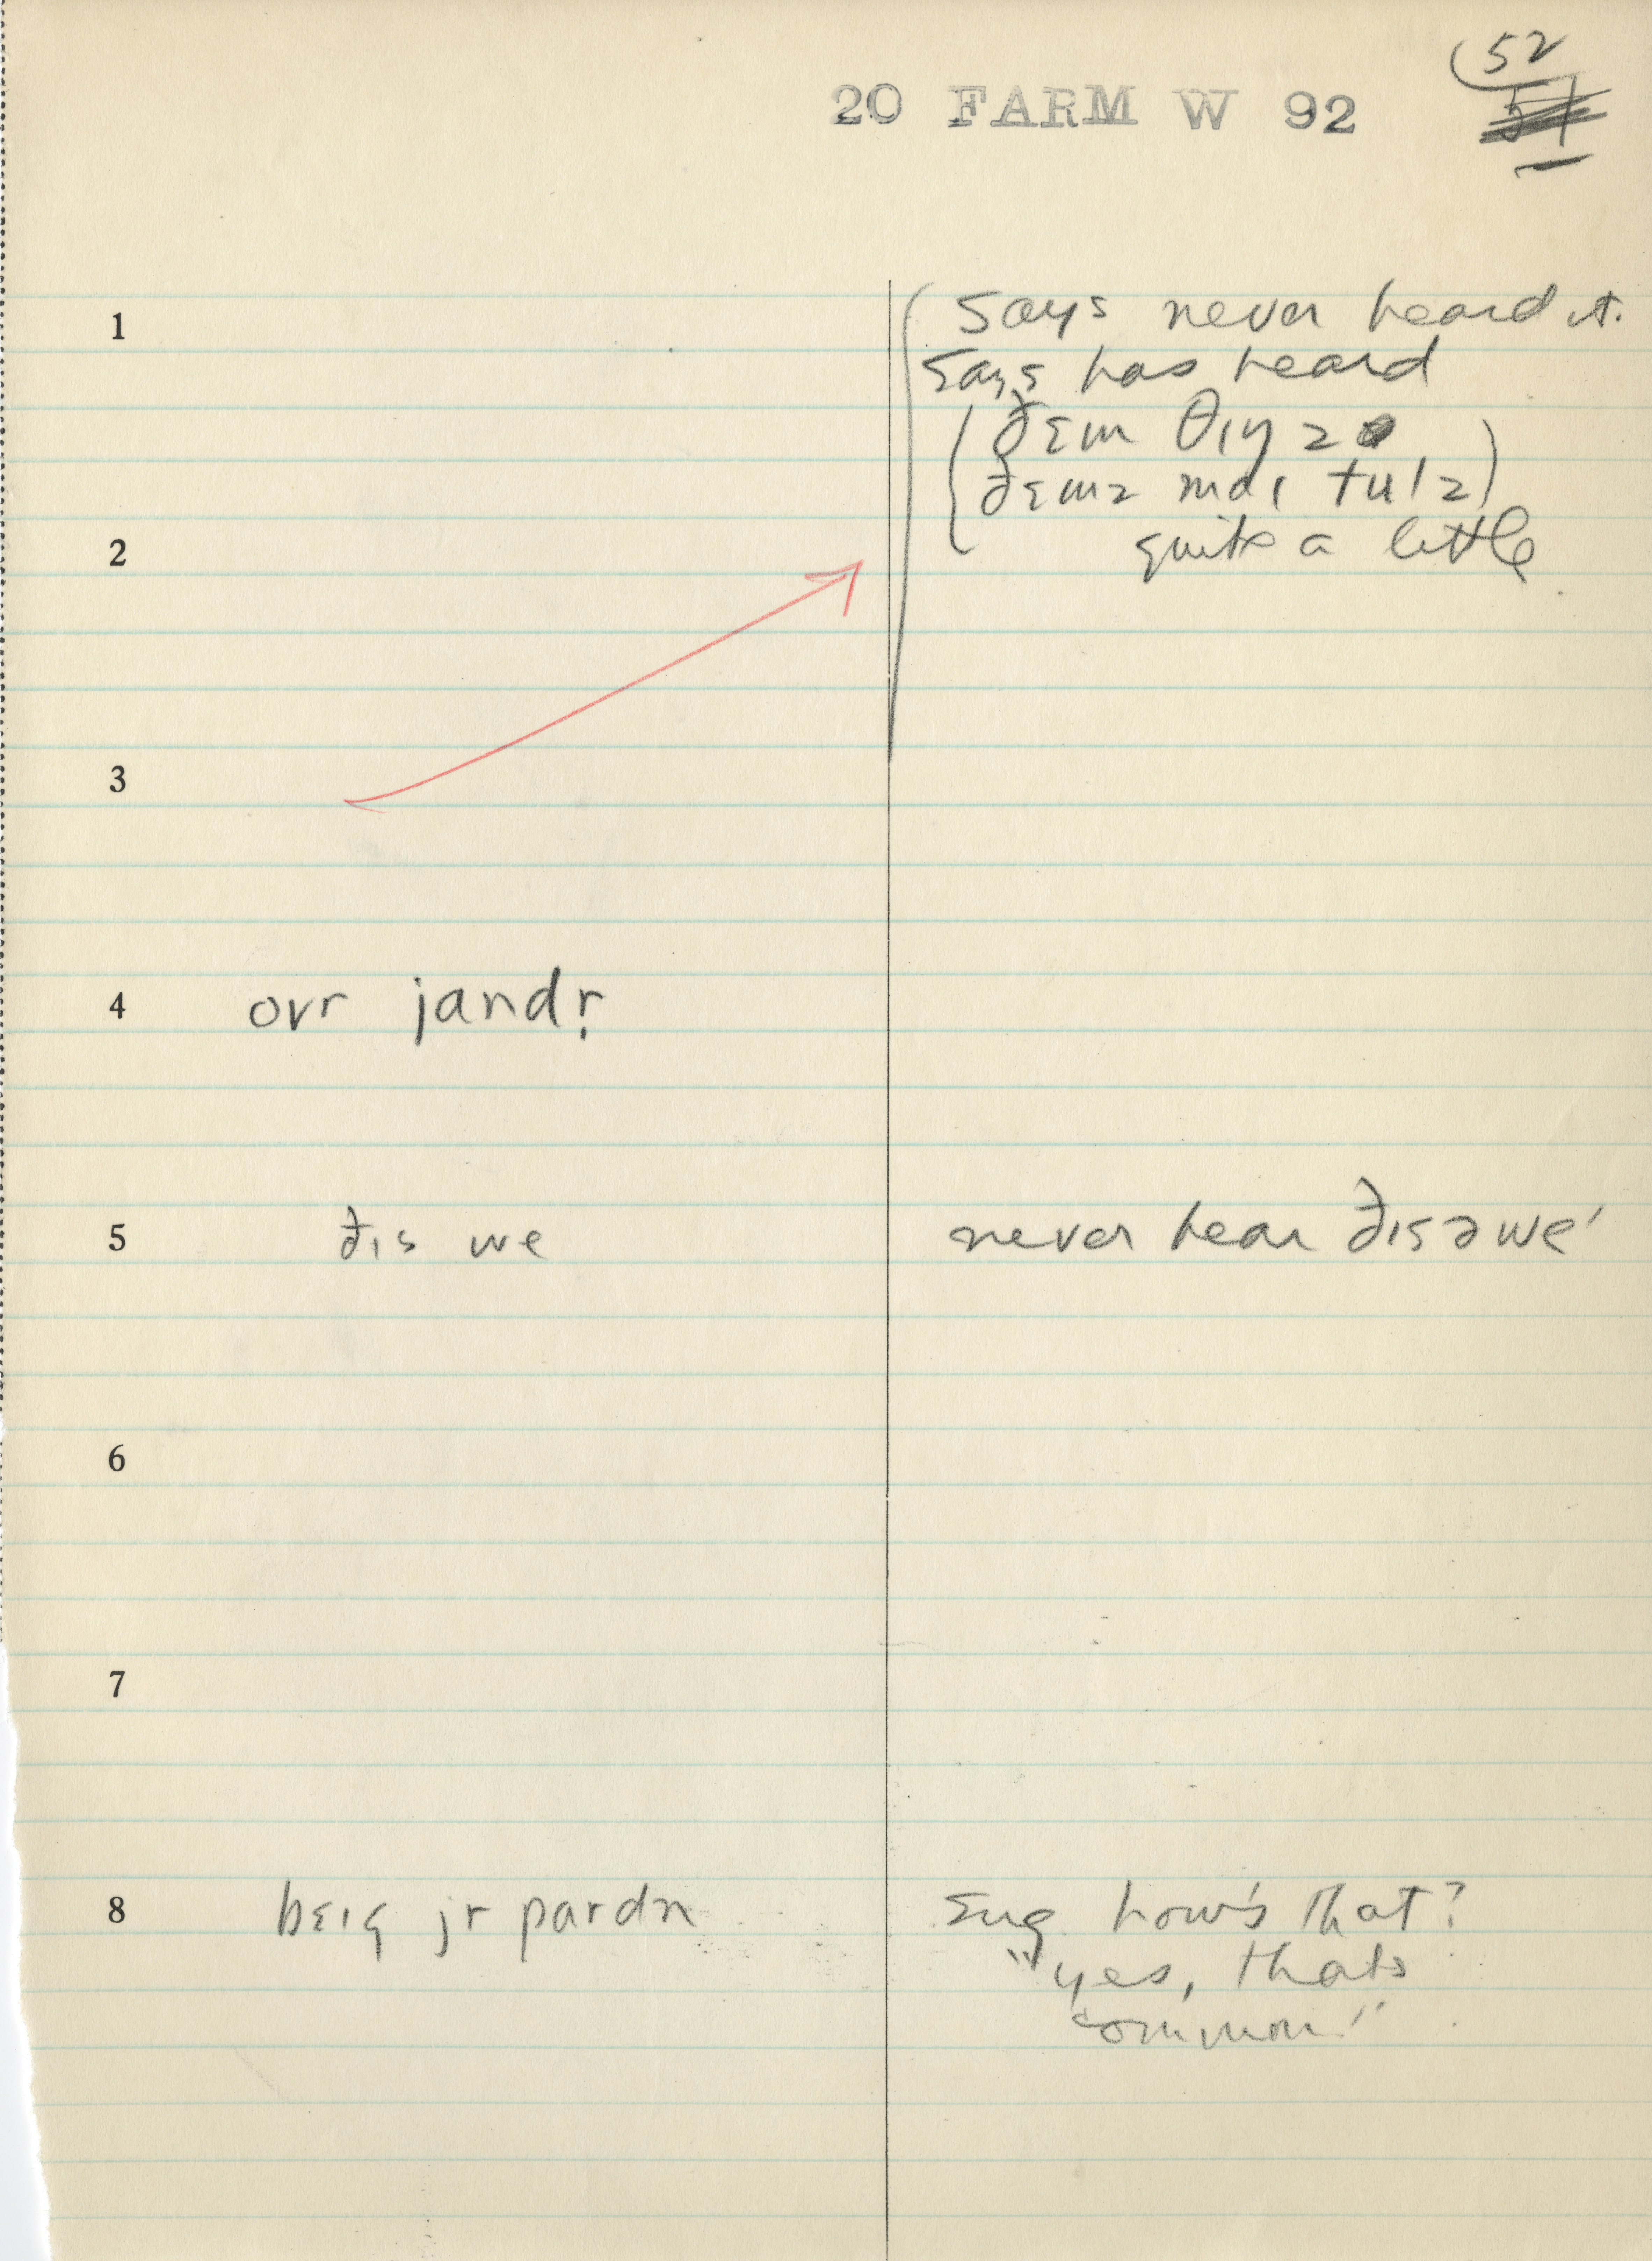 52
20 FARM W 92
51
1 Says never heard it.
Says has heard
ðɛm θɪŋz
ðɛmz maɪ tulz
2 quite a little
3
4 ovr jandr̩
5 ðɪs we never hear ðɪs ə we'
6
7
8 bɛɪg jr pardn Sug how's that?
"yes, thats
common"